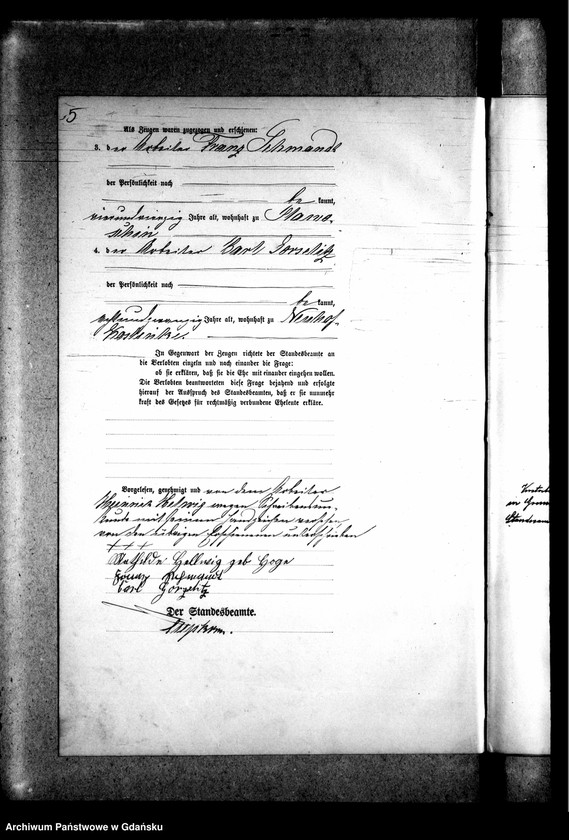 5
Als Zeugen waren zugezogen und erschienen:
3. der Arbeiter Franz Schmandt
der Persönlichkeit nach
be kannt,
vierundvierzig Jahre alt, wohnhaft zu
4. der Arbeiter Carl
der Persönlichkeit nach
be kannt,
Jahre alt, wohnhaft zu Neuhof-
In Gegenwart der Zeugen richtete der Standesbeamte an
die Verlobten einzeln und nach einander die Frage:
ob sie erklären, daß sie die Ehe mit einander eingehen wollen.
Die Verlobten beantworteten diese Frage bejahend und erfolgte
hierauf der Ausspruch des Standesbeamten, daß er sie nunmehr
kraft des Gesetzes für rechtmäßig verbundene Eheleute erkläre.
Vorgelesen, genehmigt und von dem Arbeiter
Heinrich Helwig wegen Schreibensun-
kunde mit seinem Handzeichen versehen
von den übrigen Erschienenen unterschrieben
+ + +
Mathilde Hellwig geb Hoge
Franz Schmandt
Carl
Der Standesbeamte.
Archiwum Państwowe w Gdańsku